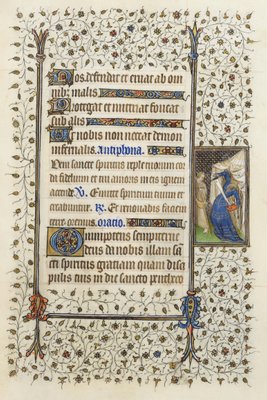 Nos defendat et eruat ab om
nibus malis.
Protegat et nutriat foveat
sub alis
Ut nobis non noceat demon
infernalis. Antiphona.
Veni sancte spiritus reple tuorum cor
da fidelium et tui amoris in eis ignem
accende. V. Emitte spiritum tuum et
creabuntur. R. Et renovabis faciem
terre. oremus. oracio.
Omnipotens sempiterne
deus da nobis illam sa
cti spiritus gratiam quam disci
pulis tuis in die sancto pentheco